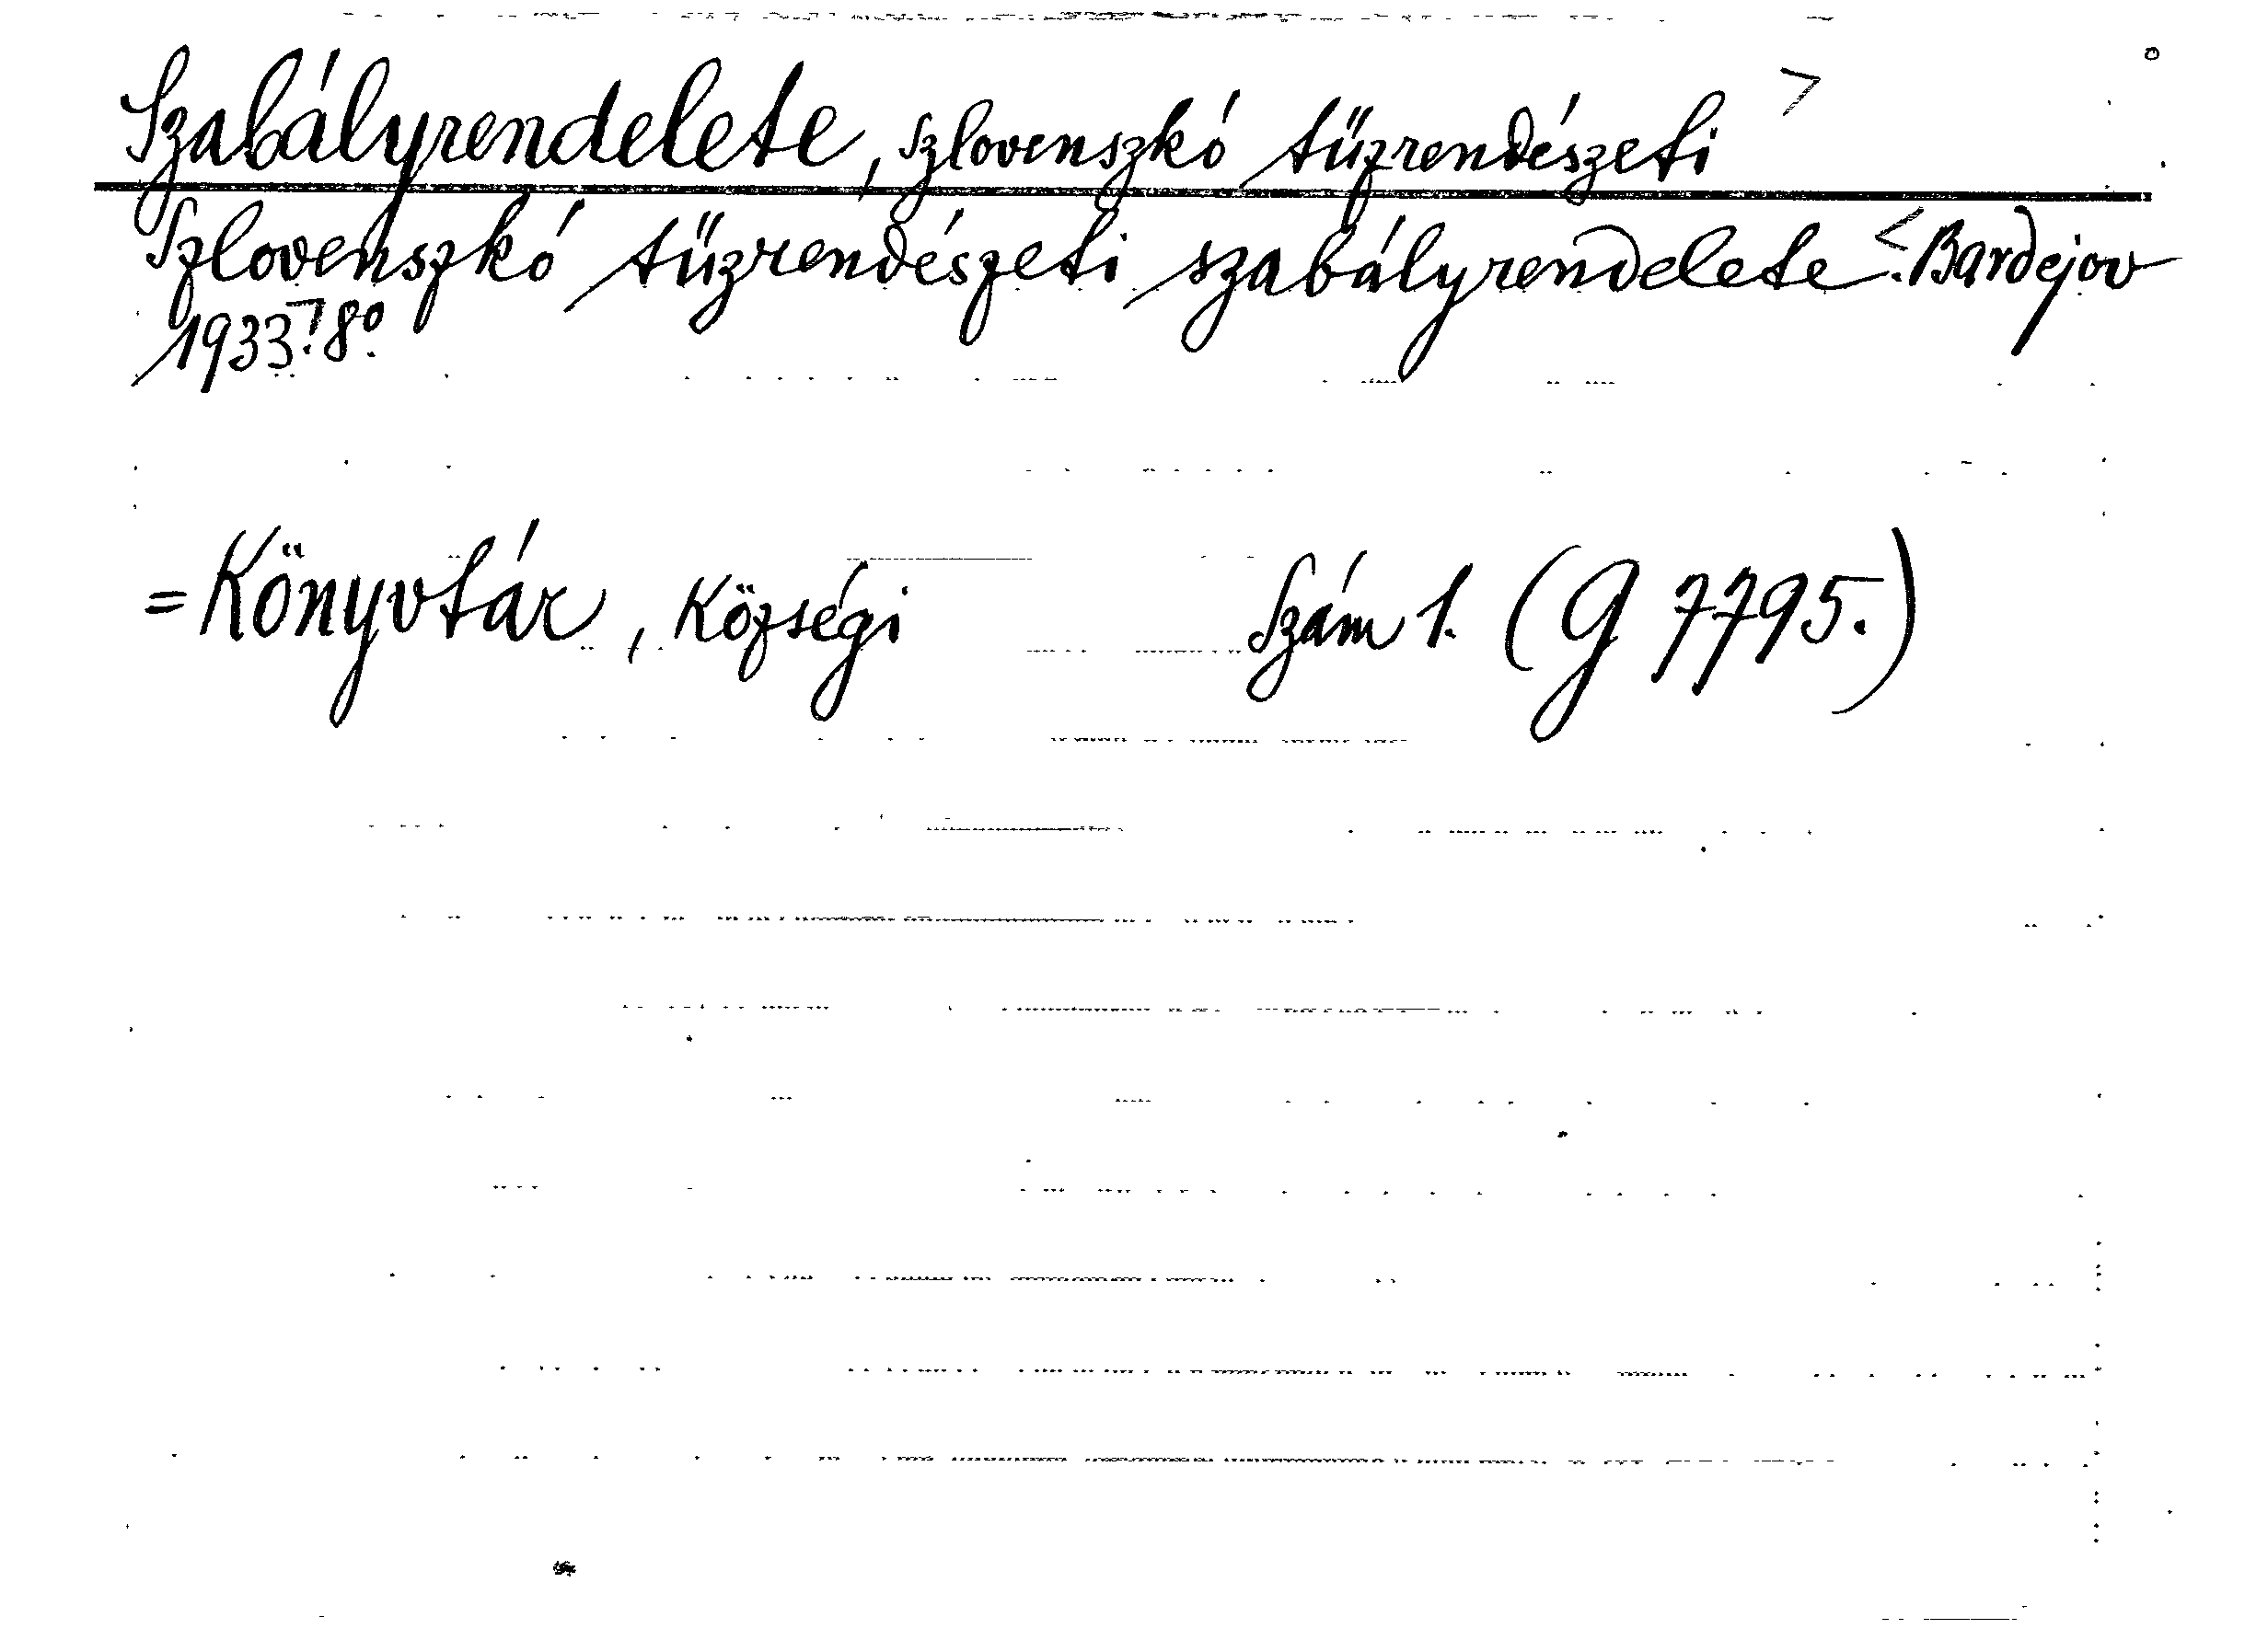 Szabályrendelete, szlovenszkó tűzrendészeti >
Szlovenszkó tűzrendészeti szabályrendelete <. Bardejov
1933. 8°.
= Könyvtár, Községi Szám 1. (G 7795.)